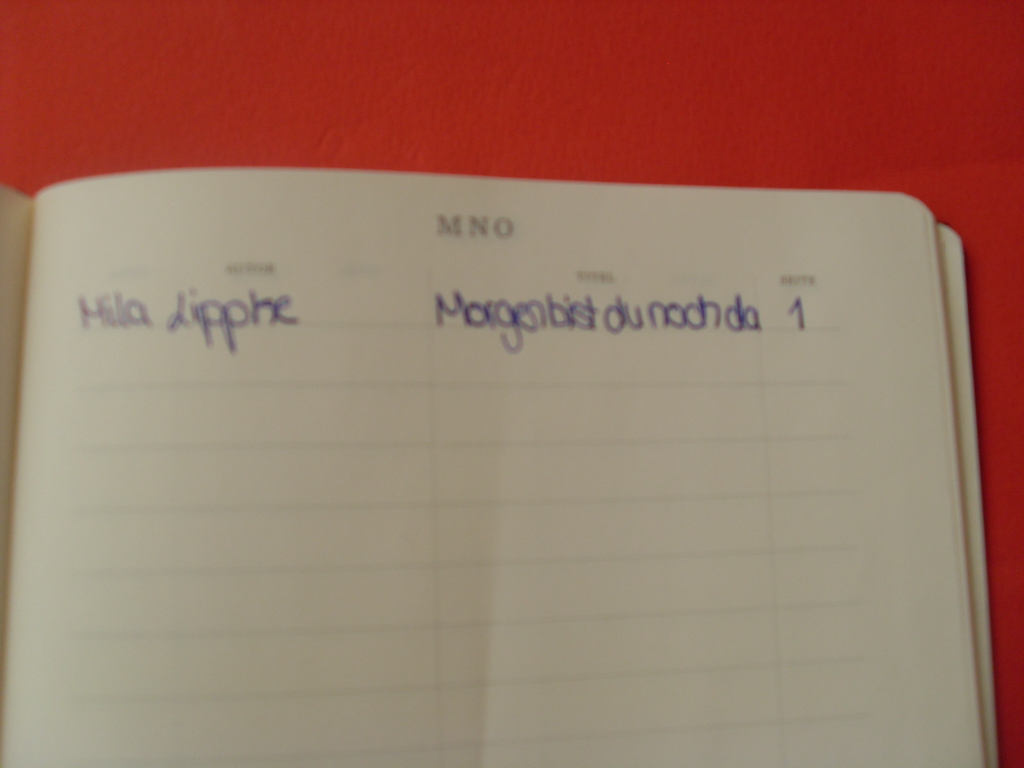 MNO
AUTOR TITEL SEITE
Mila Lippke Morgen bist du noch da 1